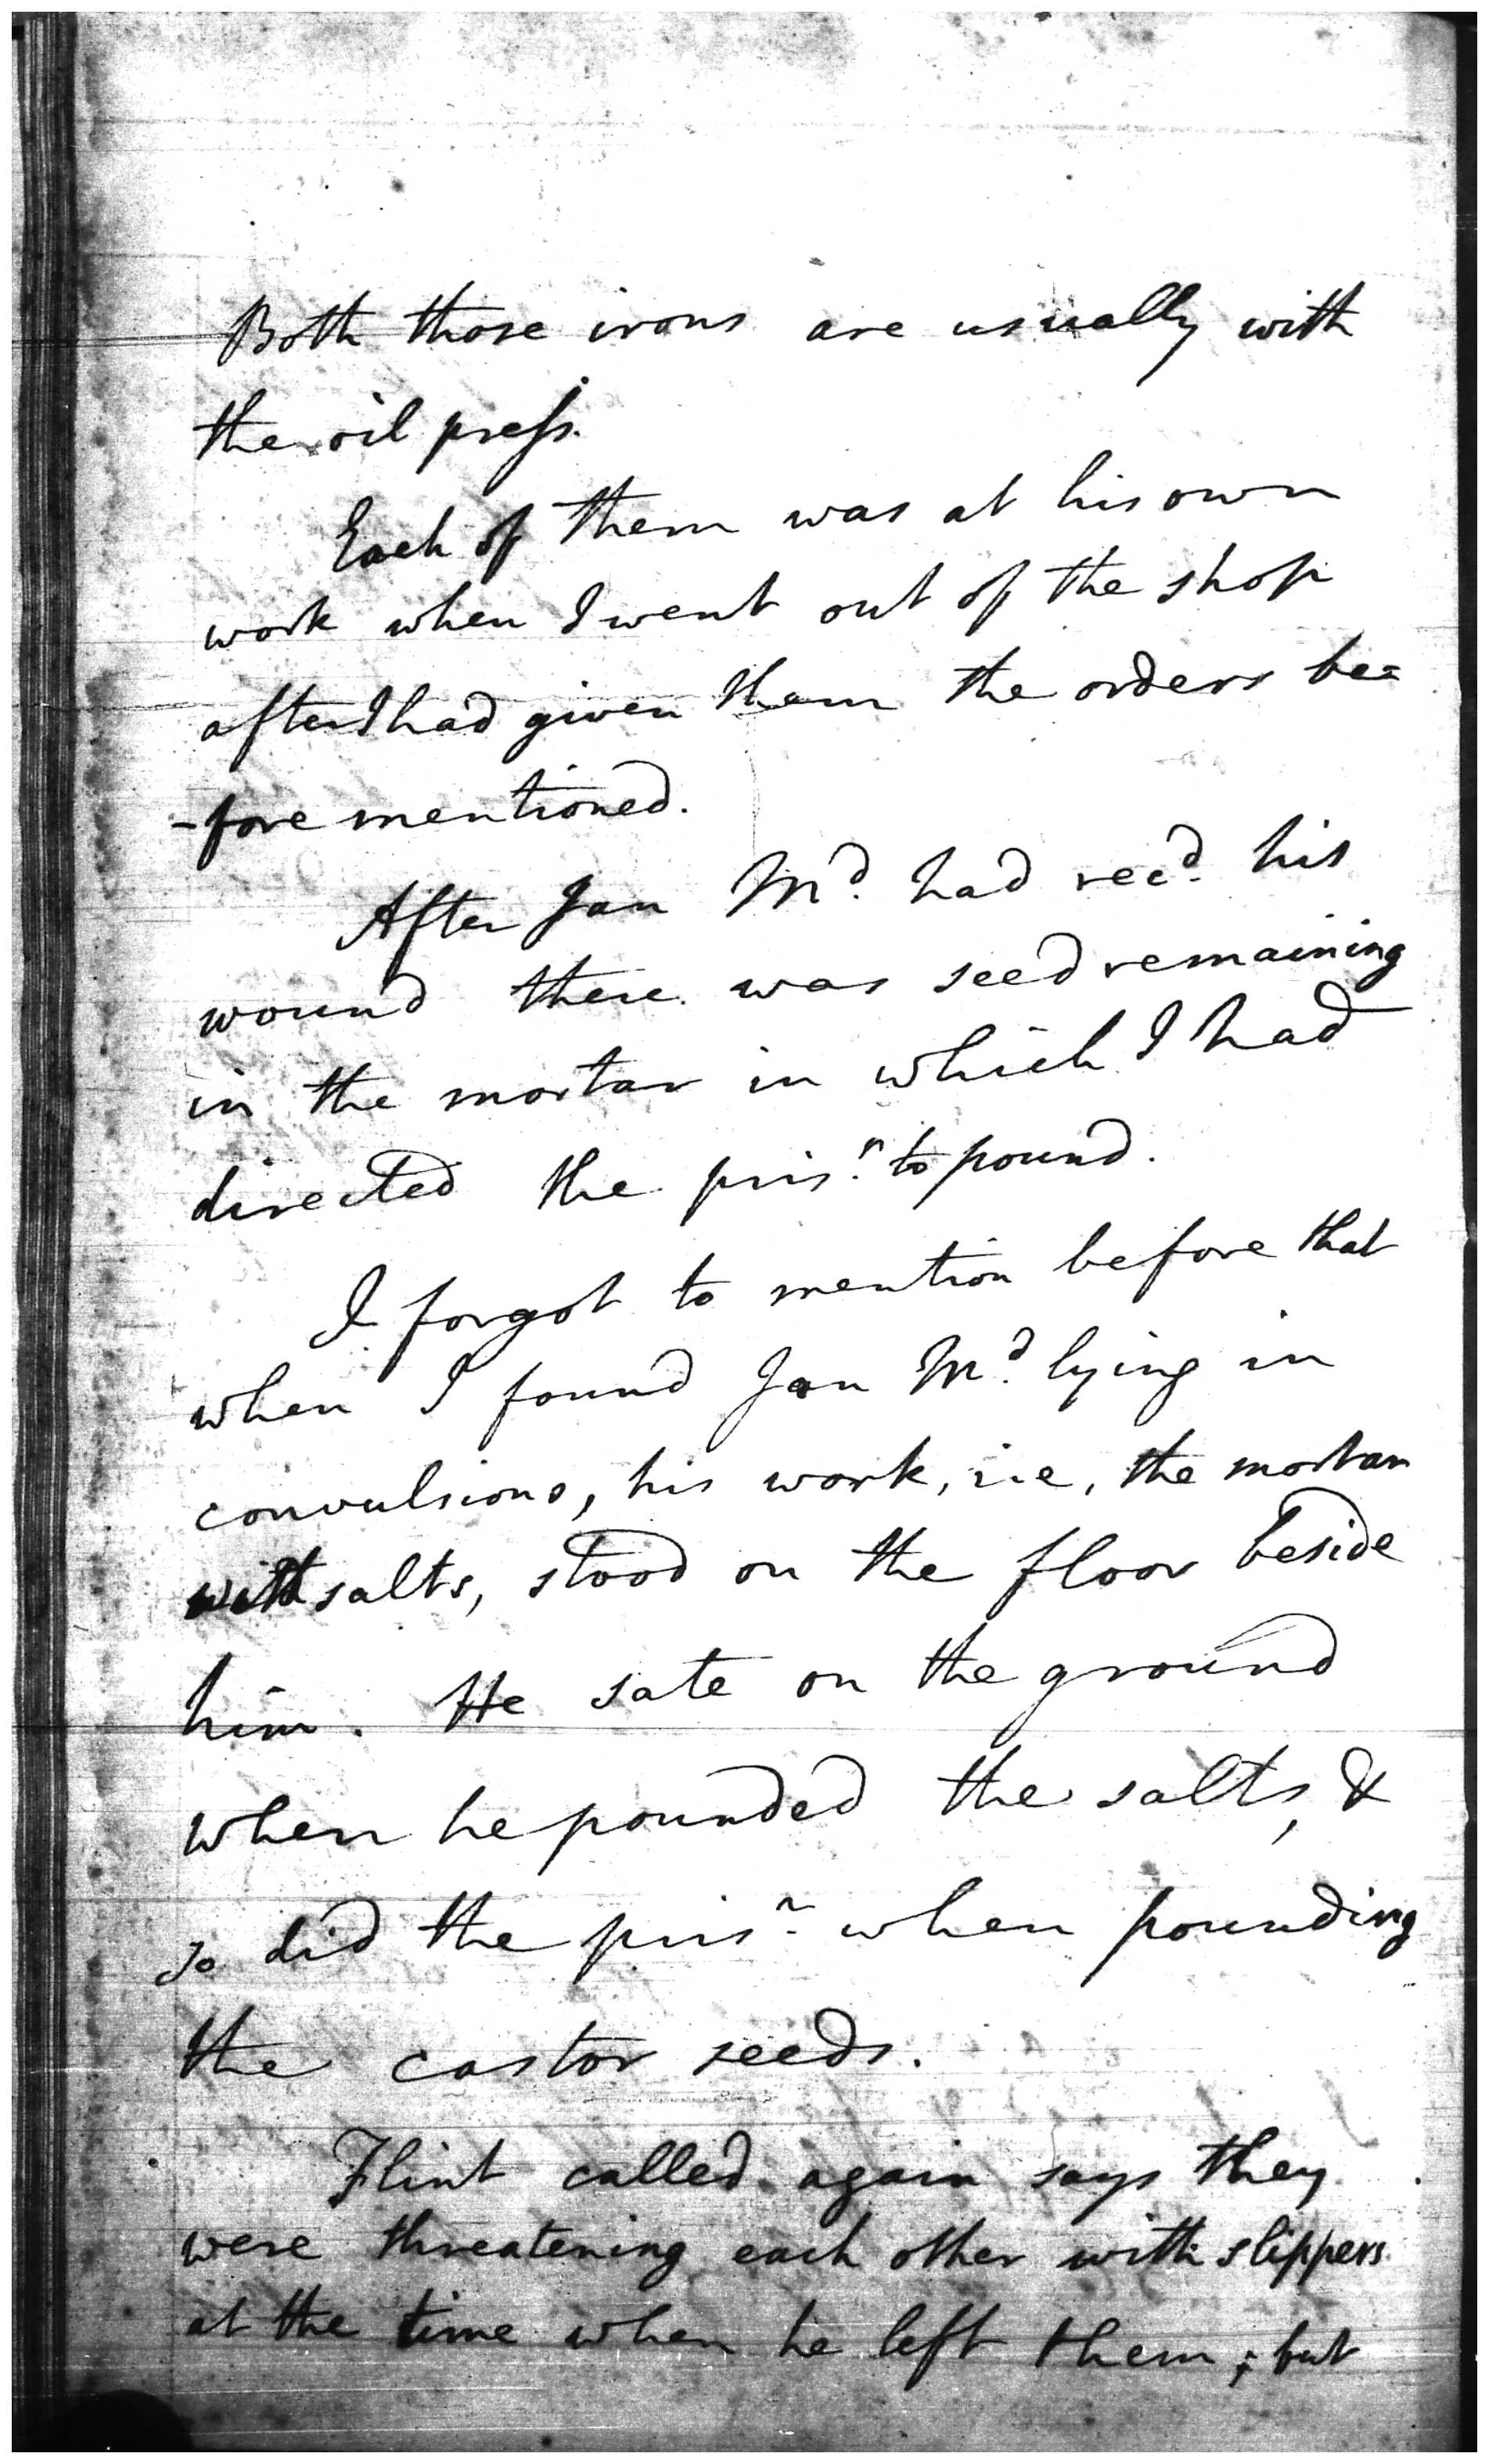 Both those irons are usually with
the oil press.
Each of them was at his own
work when I went out of the shop
after I had given them the orders be=
-fore mentioned.
After Jan Md. had recd. his
wound there was seed remaining
in the mortar in which I had
directed the prisr. to pound.
I forgot to mention before that
when I found Jan Md. lying in
convulsions, his work, i.e, the mortar
with salts, stood on the floor beside
him. He sate on the ground
when he pounded the salts, &
so did the prisr. when pounding
the castor seeds.
Flint called again says they
were threatening each other with slippers
at the time when he left them; but